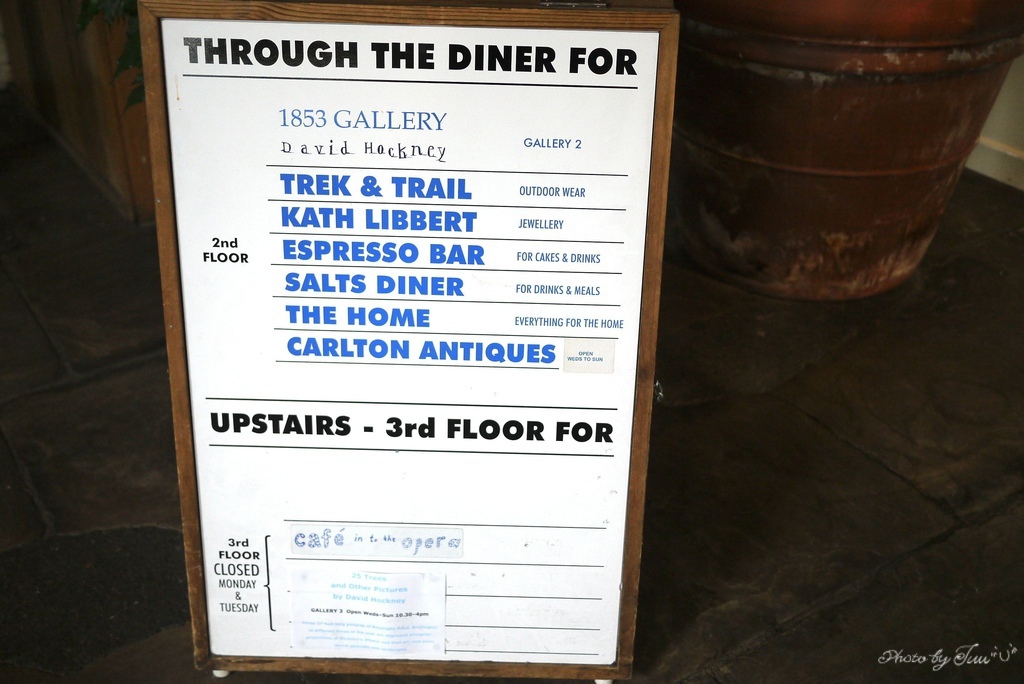 THROUGH THE DINER FOR
1853 GALLERY
David Hockney
GALLERY 2
TREK & TRAIL OUTDOOR WEAR
KATH LIBBERT JEWELLERY
2nd
FLOOR
ESPRESSO BAR FOR CAKES & DRINKS
SALTS DINER FOR DRINKS & MEALS
THE HOME EVERYTHING FOR THE HOME
CARLTON ANTIQUES
OPEN
WEDS TO SUN
UPSTAIRS - 3rd FLOOR FOR
3rd
FLOOR
CLOSED
MONDAY
&
TUESDAY
café in to the opera
25 Trees
and Other Pictures
by David Hockney
GALLERY 3 Open Weds-Sun 10.30-4pm
Photo by